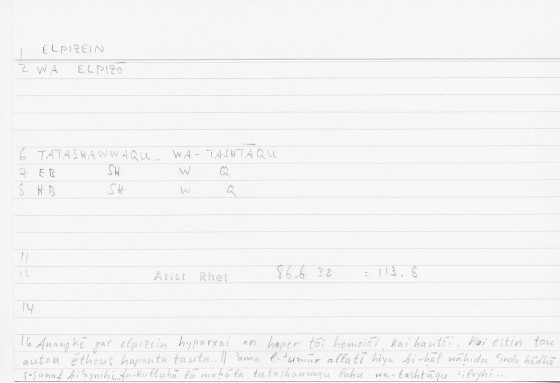 1 ELPIZEIN
2 WA ELPIZŌ
6 TATASHAWWAQU.. WA- TASHTĀQU
7 EB SH W Q
8 HB SH W Q
11
12 Arist Rhet 86b 32 = 113.8
14
16 Anangkē gar elpizein hyparxai an haper tōi homoiōi, kai hautōi. Kai estin tou
autou ēthous hapanta tauta. // 'anna l-'umūr allatī hiya bi-ḥāl wāḥida 'inda hādhā
ṣ-ṣanaf bi-'aynihi fa-kulluhā lā maḥāla tatashawwaqu lahu wa-tashtāqu ilayhi...